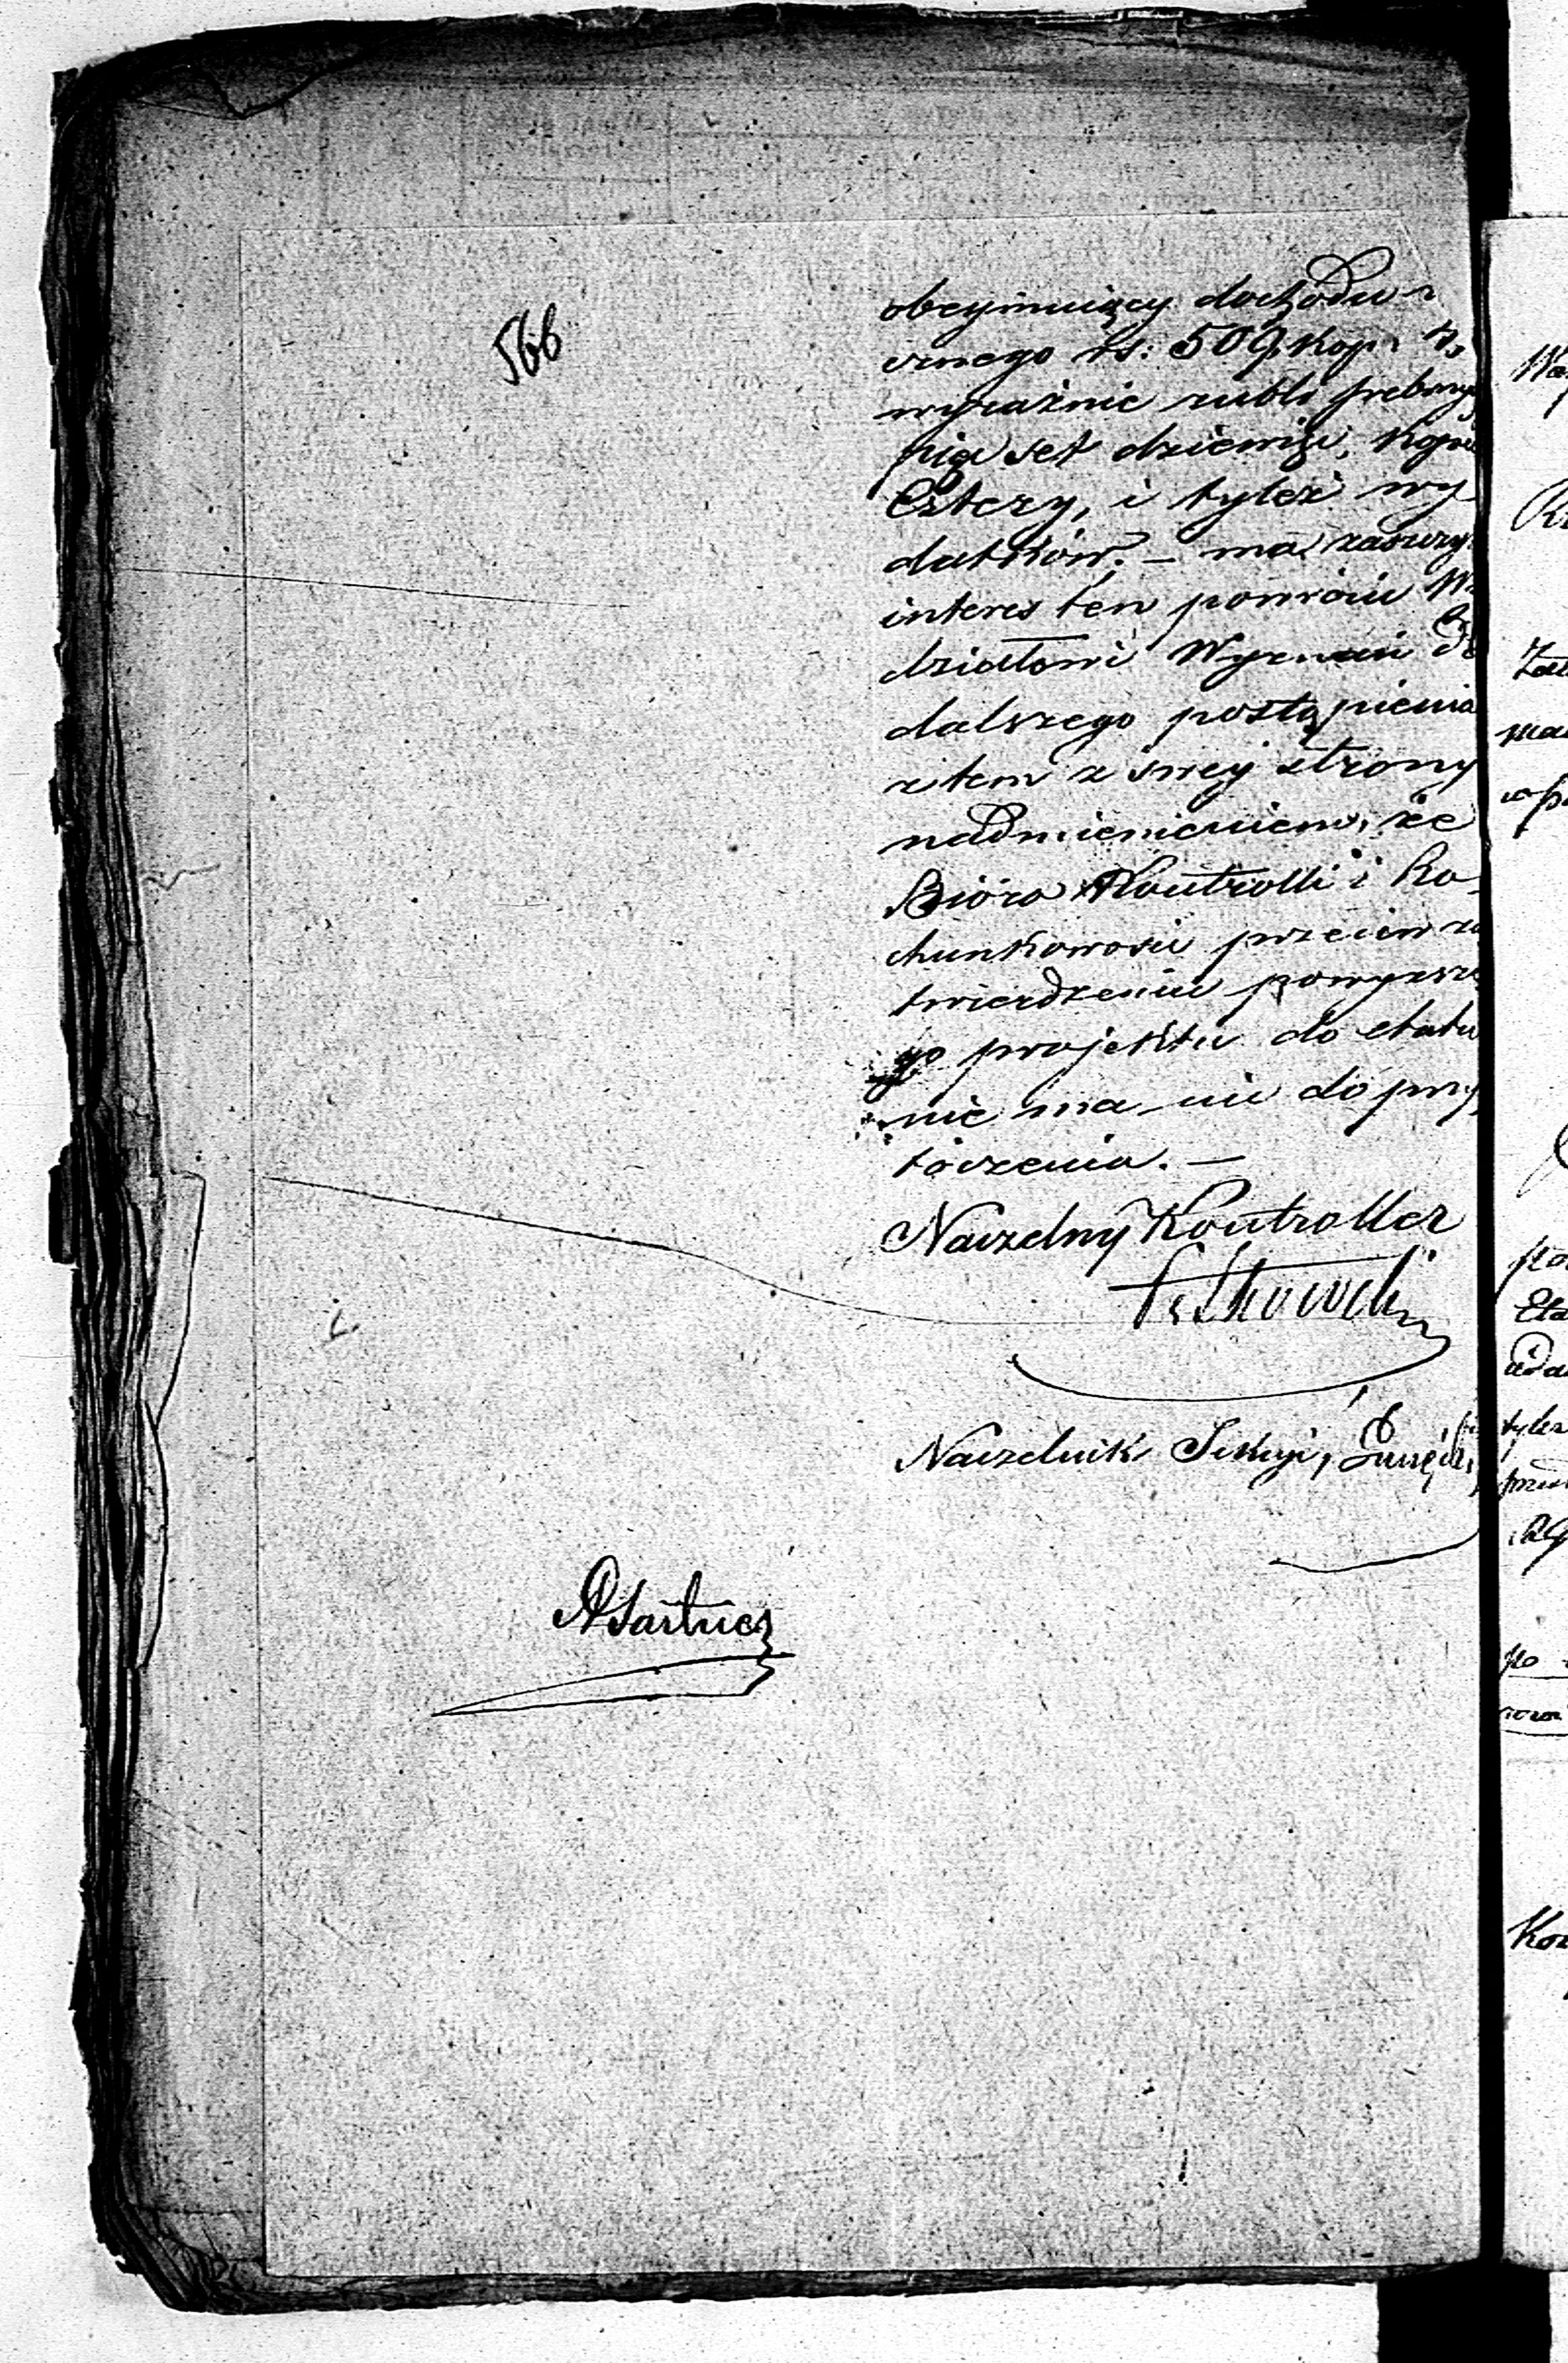 566
obeymuiący dochodu r
cznego rs: 509 kop. 4,
wyraźnie rubli srebrny
pięć set dziewięć, kopie
Cztery, i tyleż wy-
datków. – ma zaszczyt
interes ten powrócić Wy
działowi Wyznań do
dalszego postąpienia
z tem z swey strony
nadmienieniem, że
Bióro Kontrolli i Ra-
chunkowości przeciw za
twierdzeniu powyższe
go projektu do etatu
nie ma nic do przy
toczenia. –
Naczelny Kontroller
Naczelnik Sekcyi,
Wa
Za
ma
po
Eta
tyle
po
Kon